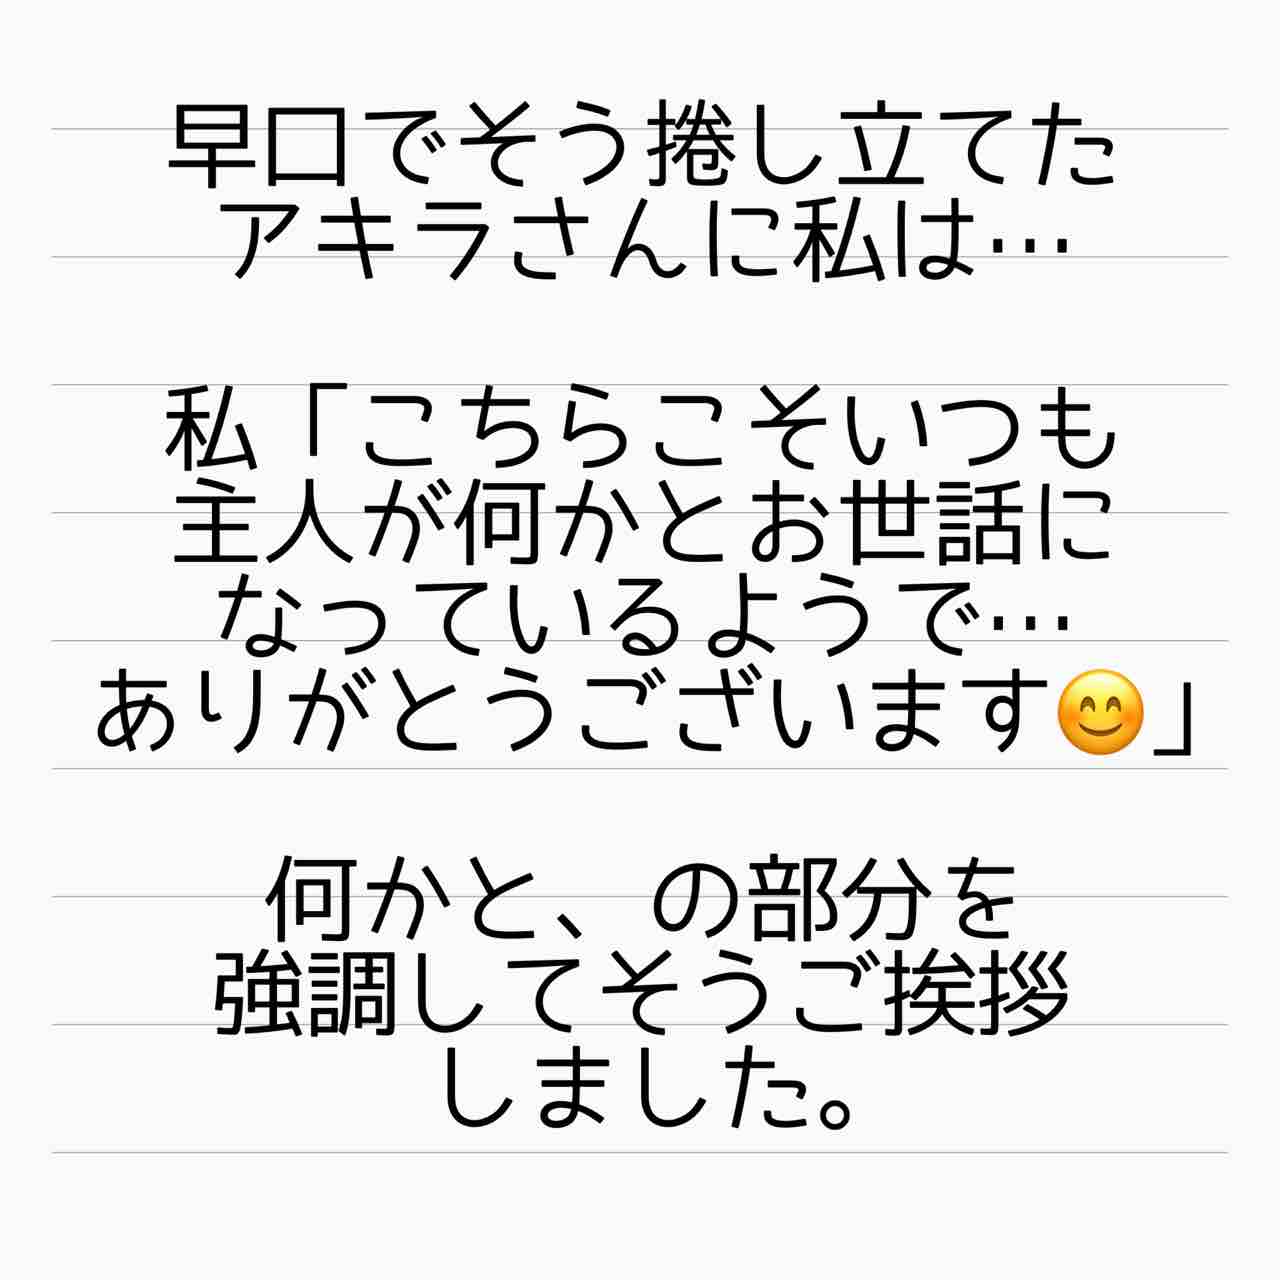 早口でそう捲し立てた
アキラさんに私は…
私「こちらこそいつも
主人が何かとお世話に
なっているようで…
ありがとうございます😊」
何かと、の部分を
強調してそうご挨拶
しました。